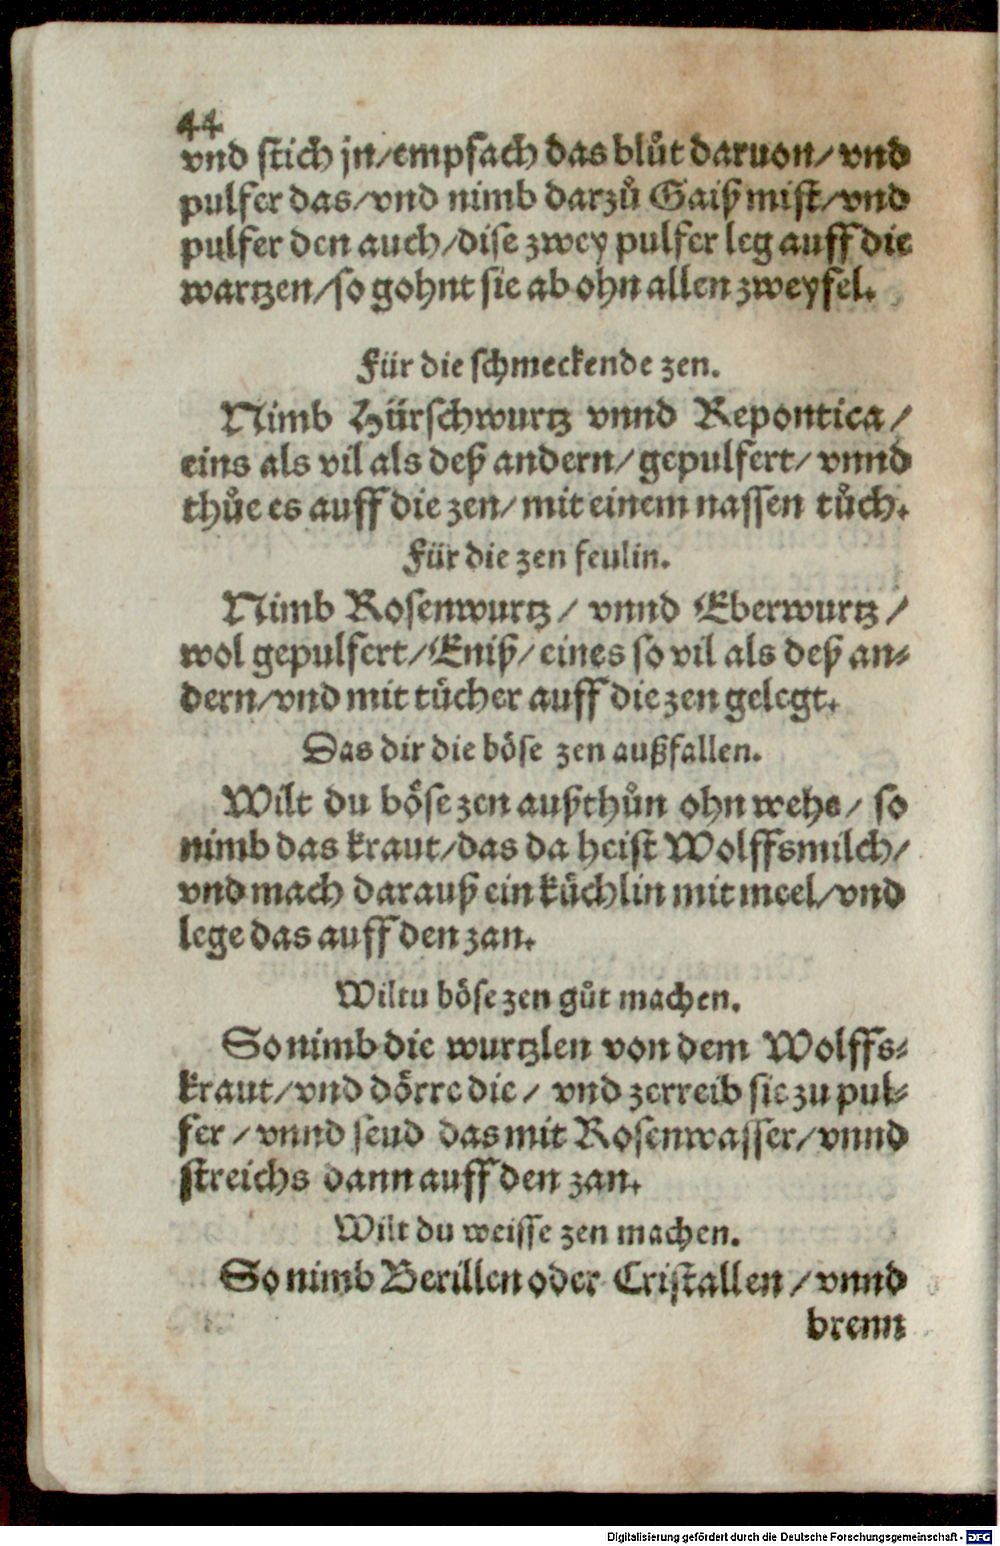 44
vnd stich jn/empfach das blůt daruon/ vnd
pulfer das/vnd nimb darzů Gaiß mist/vnd
pulfer den auch/dise zwey pulfer leg auff die
wartzen/so gohnt sie ab ohn allen zweyfel.
Für die schmeckende zen.
Nimb Hürschwurtz vnnd Repontica/
eins als vil als deß andern/gepulfert/ vnnd
thůe es auff die zen/ mit einem nassen tůch.
Für die zen feulin.
Nimb Rosenwurtz/ vnnd Eberwurtz/
wol gepulfert/Eniß/eines so vil als deß an⸗
dern/vnd mit tücher auff die zen gelegt.
Das dir die böse zen außfallen.
Wilt du böse zen außthůn ohn wehe/ so
nimb das kraut/das da heist Wolffsmilch/
vnd mach darauß ein küchlin mit meel/vnd
lege das auff den zan.
Wiltu böse zen gůt machen.
So nimb die wurtzlen von dem Wolffs⸗
kraut/vnd dörre die/ vnd zerreib sie zu pul⸗
fer/ vnnd seud das mit Rosenwasser/vnnd
streichs dann auff den zan.
Wilt du weisse zen machen.
So nimb Berillen oder Cristallen/vnnd
brenn
Digitalisierung gefördert durch die Deutsche Forschungsgemeinschaft - DFG